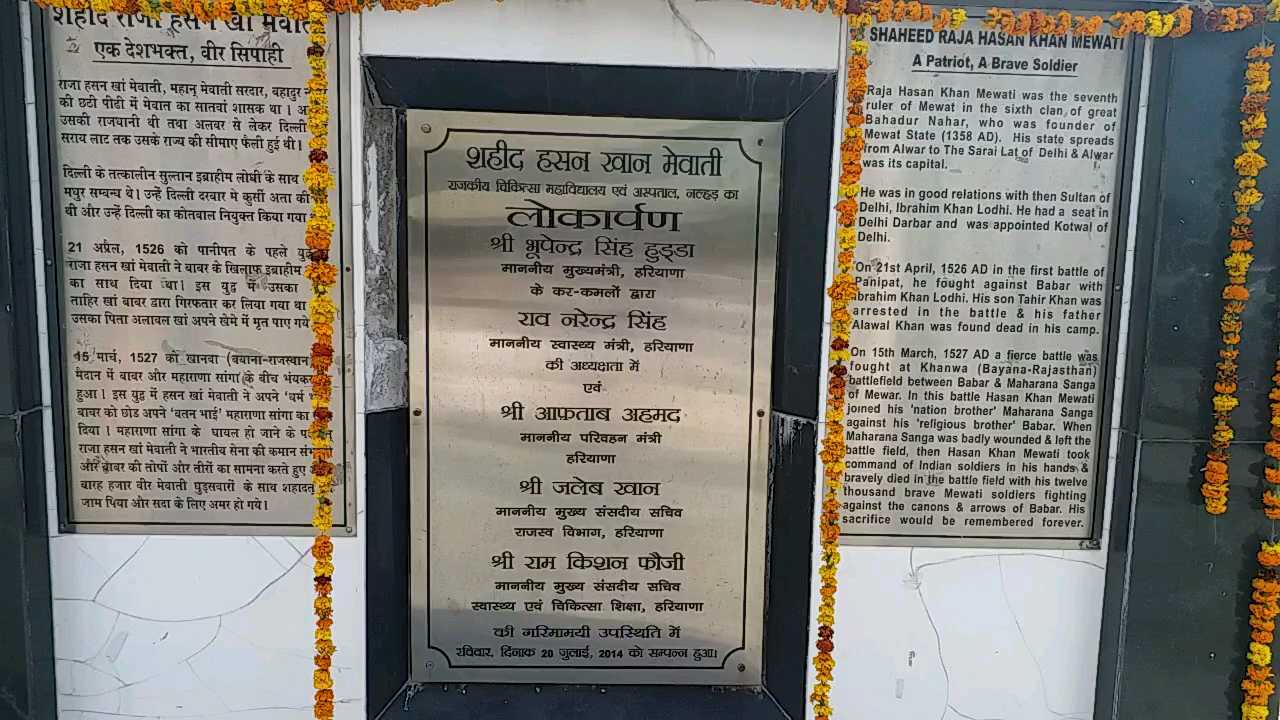 शहीद राजा हसन खां मेवाती
एक देशभक्त, वीर सिपाही
राजा हसन खां मेवाती, महान् मेवाती सरदार, बहादुर
की छटी पीढी में मेवात का सातवां शासक था।
उसकी राजधानी थी तथा अलवर से लेकर दिल्ली
सराय लाट तक उसके राज्य की सीमाए फैली हुई थी।
दिल्ली के तत्कालीन सुल्तान इब्राहीम लोधी के साथ
मधुर सम्बन्ध थे। उन्हें दिल्ली दरबार मे कुर्सी अता की
थी और उन्हें दिल्ली का कोतवाल नियुक्त किया गया
21 अप्रैल, 1526 को पानीपत के पहले युद्ध
राजा हसन खां मेवाती ने बाबर के खिलाफ इब्राहीम
का साथ दिया था। इस युद्व में उसका
ताहिर खां बाबर द्वारा गिरफतार कर लिया गया था
उसका पिता अलावल खां अपने खेमे में मृत पाए गये
15 मार्च, 1527 को खानवा (बयाना-राजस्थान
मैदान में बाबर और महाराणा सांगा के बीच भंयकर
हुआ। इस युद्व में हसन खां मेवाती ने अपने 'धर्म
बाबर को छोड अपने 'वतन भाई' महाराणा सांगा का
दिया। महाराणा सांगा के घायल हो जाने के
राजा हसन खां मेवाती ने भारतीय सेना की कमान
और बाबर की तोपों और तीरों का सामना करते हुए
बारह हजार वीर मेवाती घुडसवारों के साथ शहादत
जाम पिया और सदा के लिए अमर हो गये।
शहीद हसन खान मेवाती
राजकीय चिकित्सा महाविद्यालय एवं अस्पताल, नल्हड़ का
लोकार्पण
श्री भूपेन्द्र सिंह हुड्डा
माननीय मुख्यमंत्री, हरियाणा
के कर-कमलों द्वारा
राव नरेन्द्र सिंह
माननीय स्वास्थ्य मंत्री, हरियाणा
की अध्यक्षता में
एवं
श्री आफ़ताब अहमद
माननीय परिवहन मंत्री
हरियाणा
श्री जलेब खान
माननीय मुख्य संसदीय सचिव
राजस्व विभाग, हरियाणा
श्री राम किशन फौजी
माननीय मुख्य संसदीय सचिव
स्वास्थ्य एवं चिकित्सा शिक्षा, हरियाणा
की गरिमामयी उपस्थिति में
रविवार, दिनांक 20 जुलाई, 2014 को सम्पन्न हुआ।
SHAHEED RAJA HASAN KHAN MEWATI
A Patriot, A Brave Soldier
Raja Hasan Khan Mewati was the seventh
ruler of Mewat in the sixth clan of great
Bahadur Nahar, who was founder of
Mewat State (1358 AD). His state spreads
from Alwar to The Sarai Lat of Delhi & Alwar
was its capital.
He was in good relations with then Sultan of
Delhi, Ibrahim Khan Lodhi. He had a seat in
Delhi Darbar and was appointed Kotwal of
Delhi.
On 21st April, 1526 AD in the first battle of
Panipat, he fought against Babar with
Ibrahim Khan Lodhi. His son Tahir Khan was
arrested in the battle & his father
Alawal Khan was found dead in his camp.
On 15th March, 1527 AD a fierce battle was
fought at Khanwa (Bayana-Rajasthan)
battlefield between Babar & Maharana Sanga
of Mewar. In this battle Hasan Khan Mewati
joined his 'nation brother' Maharana Sanga
against his 'religious brother' Babar. When
Maharana Sanga was badly wounded & left the
battle field, then Hasan Khan Mewati took
command of Indian soldiers in his hands &
bravely died in the battle field with his twelve
thousand brave Mewati soldiers fighting
against the canons & arrows of Babar. His
sacrifice would be remembered forever.